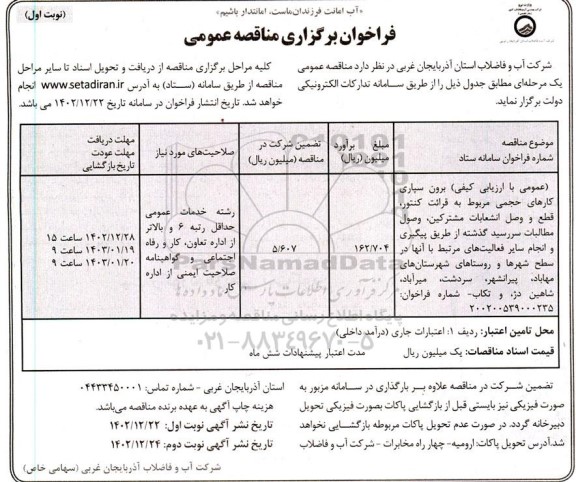 «آب امانت فرزندان‌ماست، امانتدار باشیم»
(نوبت اول)
فراخوان برگزاری مناقصه عمومی
شرکت آب و فاضلاب استان آذربایجان غربی در نظر دارد مناقصه عمومی
یک مرحله‌ای مطابق جدول ذیل را از طریق سامانه تدارکات الکترونیکی
دولت برگزار نماید.
کلیه مراحل برگزاری مناقصه از دریافت و تحویل اسناد تا سایر مراحل
مناقصه از طریق سامانه (ستاد) به آدرس www.setadiran.ir انجام
خواهد شد. تاریخ انتشار فراخوان در سامانه تاریخ ۱۴۰۲/۱۲/۲۲ می باشد.
موضوع مناقصه
شماره فراخوان سامانه ستاد
مبلغ برآورد
میلیون (ریال)
تضمین شرکت در
مناقصه (میلیون ریال)
صلاحیت‌های مورد نیاز
مهلت دریافت
مهلت عودت
تاریخ بازگشایی
(عمومی با ارزیابی کیفی) برون سپاری
کارهای حجمی مربوط به قرائت کنتور،
قطع و وصل انشعابات مشترکین، وصول
مطالبات سررسید گذشته از طریق پیگیری
و انجام سایر فعالیت‌های مرتبط با آنها در
سطح شهرها و روستاهای شهرستان‌های
مهاباد، پیرانشهر، سردشت، میرآباد،
شاهین دژ، و تکاب- شماره فراخوان:
۲۰۰۲۰۰۵۳۹۰۰۰۲۳۵
۱۶۲/۷۰۴
۵/۶۰۷
رشته خدمات عمومی
حداقل رتبه ۶ و بالاتر
از اداره تعاون، کار و رفاه
اجتماعی و گواهینامه
صلاحیت ایمنی از اداره
کار
۱۴۰۲/۱۲/۲۸ ساعت ۱۵
۱۴۰۳/۰۱/۱۹ ساعت ۹
۱۴۰۳/۰۱/۲۰ ساعت ۹
ParsNamadData
۰۲۱-۸۸۳۴۹۶۷۰-۵
محل تامین اعتبار: ردیف ۱: اعتبارات جاری (درآمد داخلی)
قیمت اسناد مناقصات: یک میلیون ریال مدت اعتبار پیشنهادات شش ماه
تضمین شرکت در مناقصه علاوه بر بارگذاری در سامانه مزبور به
صورت فیزیکی نیز بایستی قبل از بازگشایی پاکات بصورت فیزیکی تحویل
دبیرخانه گردد. در صورت عدم تحویل پاکات مربوطه بازگشایی نخواهد
شد.آدرس تحویل پاکات: ارومیه- چهار راه مخابرات - شرکت آب و فاضلاب
استان آذربایجان غربی - شماره تماس: ۰۴۴۳۳۴۵۰۰۰۱
هزینه چاپ آگهی به عهده برنده مناقصه می‌باشد.
تاریخ نشر آگهی نوبت اول: ۱۴۰۲/۱۲/۲۲
تاریخ نشر آگهی نوبت دوم: ۱۴۰۲/۱۲/۲۴
شرکت آب و فاضلاب آذربایجان غربی (سهامی خاص)